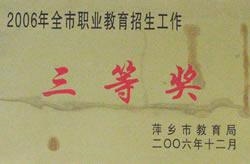 2006年全市职业教育招生工作
三等奖
萍乡市教育局
二〇〇六年十二月